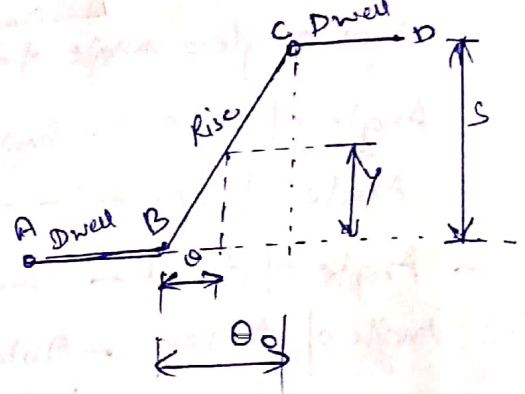 C Dwell D
Rise
S
y
A Dwell B
θ
θo